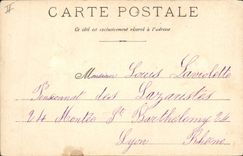 CARTE POSTALE
Ce côté est exclusivement réservé à l'adresse
Monsieur Louis
Pensionnat des Lazaristes
24 Montée St Barthélemy 24
Lyon Rhône